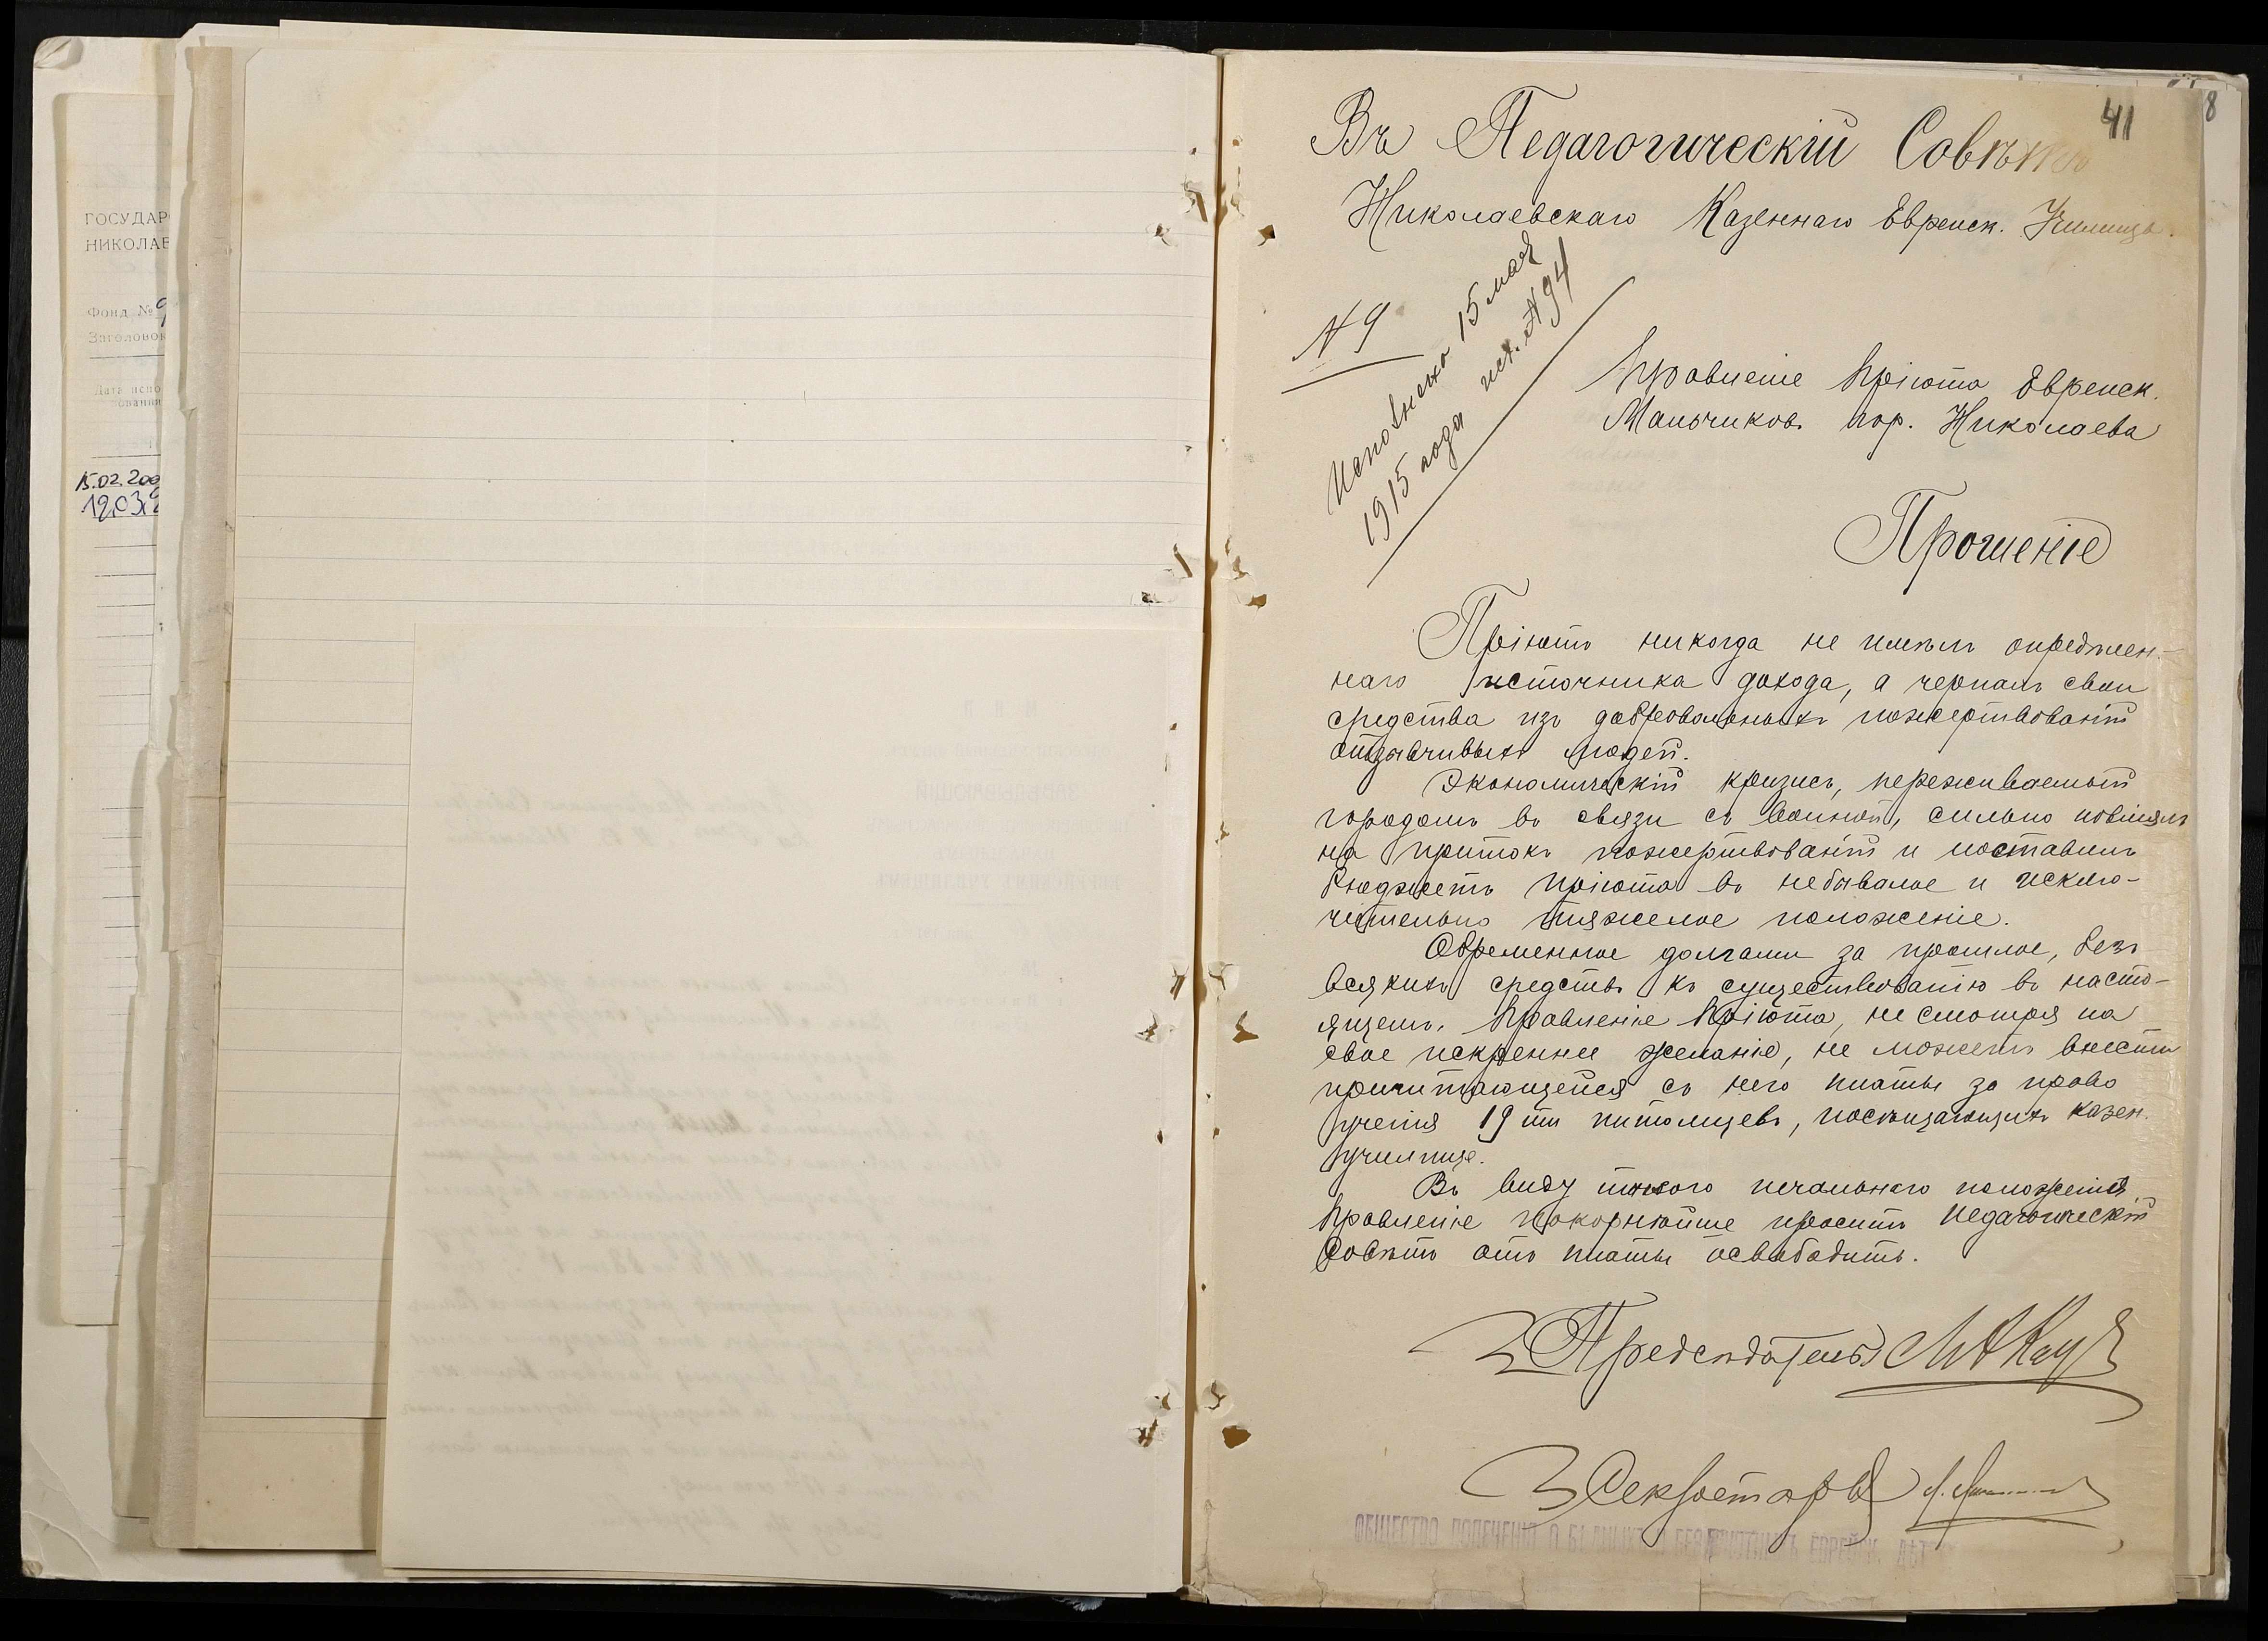 ГОСУДАР
НИКОЛАЕ
Фонд №9
Заголовок
Дата испо
зовании
15.02.200
19.03.2
41
8
Въ Педагогическій Совѣтъ
Николаевскаго Казеннаго Еврейск. Училища.
№ 9
Исполнено 15 мая
1915 года исх. № 94
Правленіе Пріюта Еврейск.
Мальчиков. гор. Николаева
Прошеніе
Пріютъ никогда не имѣлъ опредѣлен-
наго источника дохода, а черпалъ свои
средства изъ добровольныхъ пожертвованій
отзывчивыхъ людей.
Экономическій кризисъ, переживаемый
городомъ въ связи съ войной, сильно повліялъ
на притокъ пожертвованій и поставилъ
бюджетъ пріюта въ небывалое и исклю-
чительно тяжелое положеніе.
Обременное долгами за прошлое, безъ
всякихъ средствъ къ существованію въ насто-
ящемъ, Правленіе Пріюта, не смотря на
свое искреннее желаніе, не можетъ внести
причитающейся съ него платы за право
ученія 19 ти питомцевъ, посѣщающихъ казен.
училище.
Въ виду такого печальнаго положенія
Правленіе покорнѣйше проситъ Педагогическій
Совѣтъ отъ платы освободить.
Предсѣдатель
Секретарь
ОБЩЕСТВО ПОПЕЧЕНІЯ О БѢДНЫХЪ И БЕЗПРІЮТНЫХЪ ЕВРЕЙСК. ДѢТ